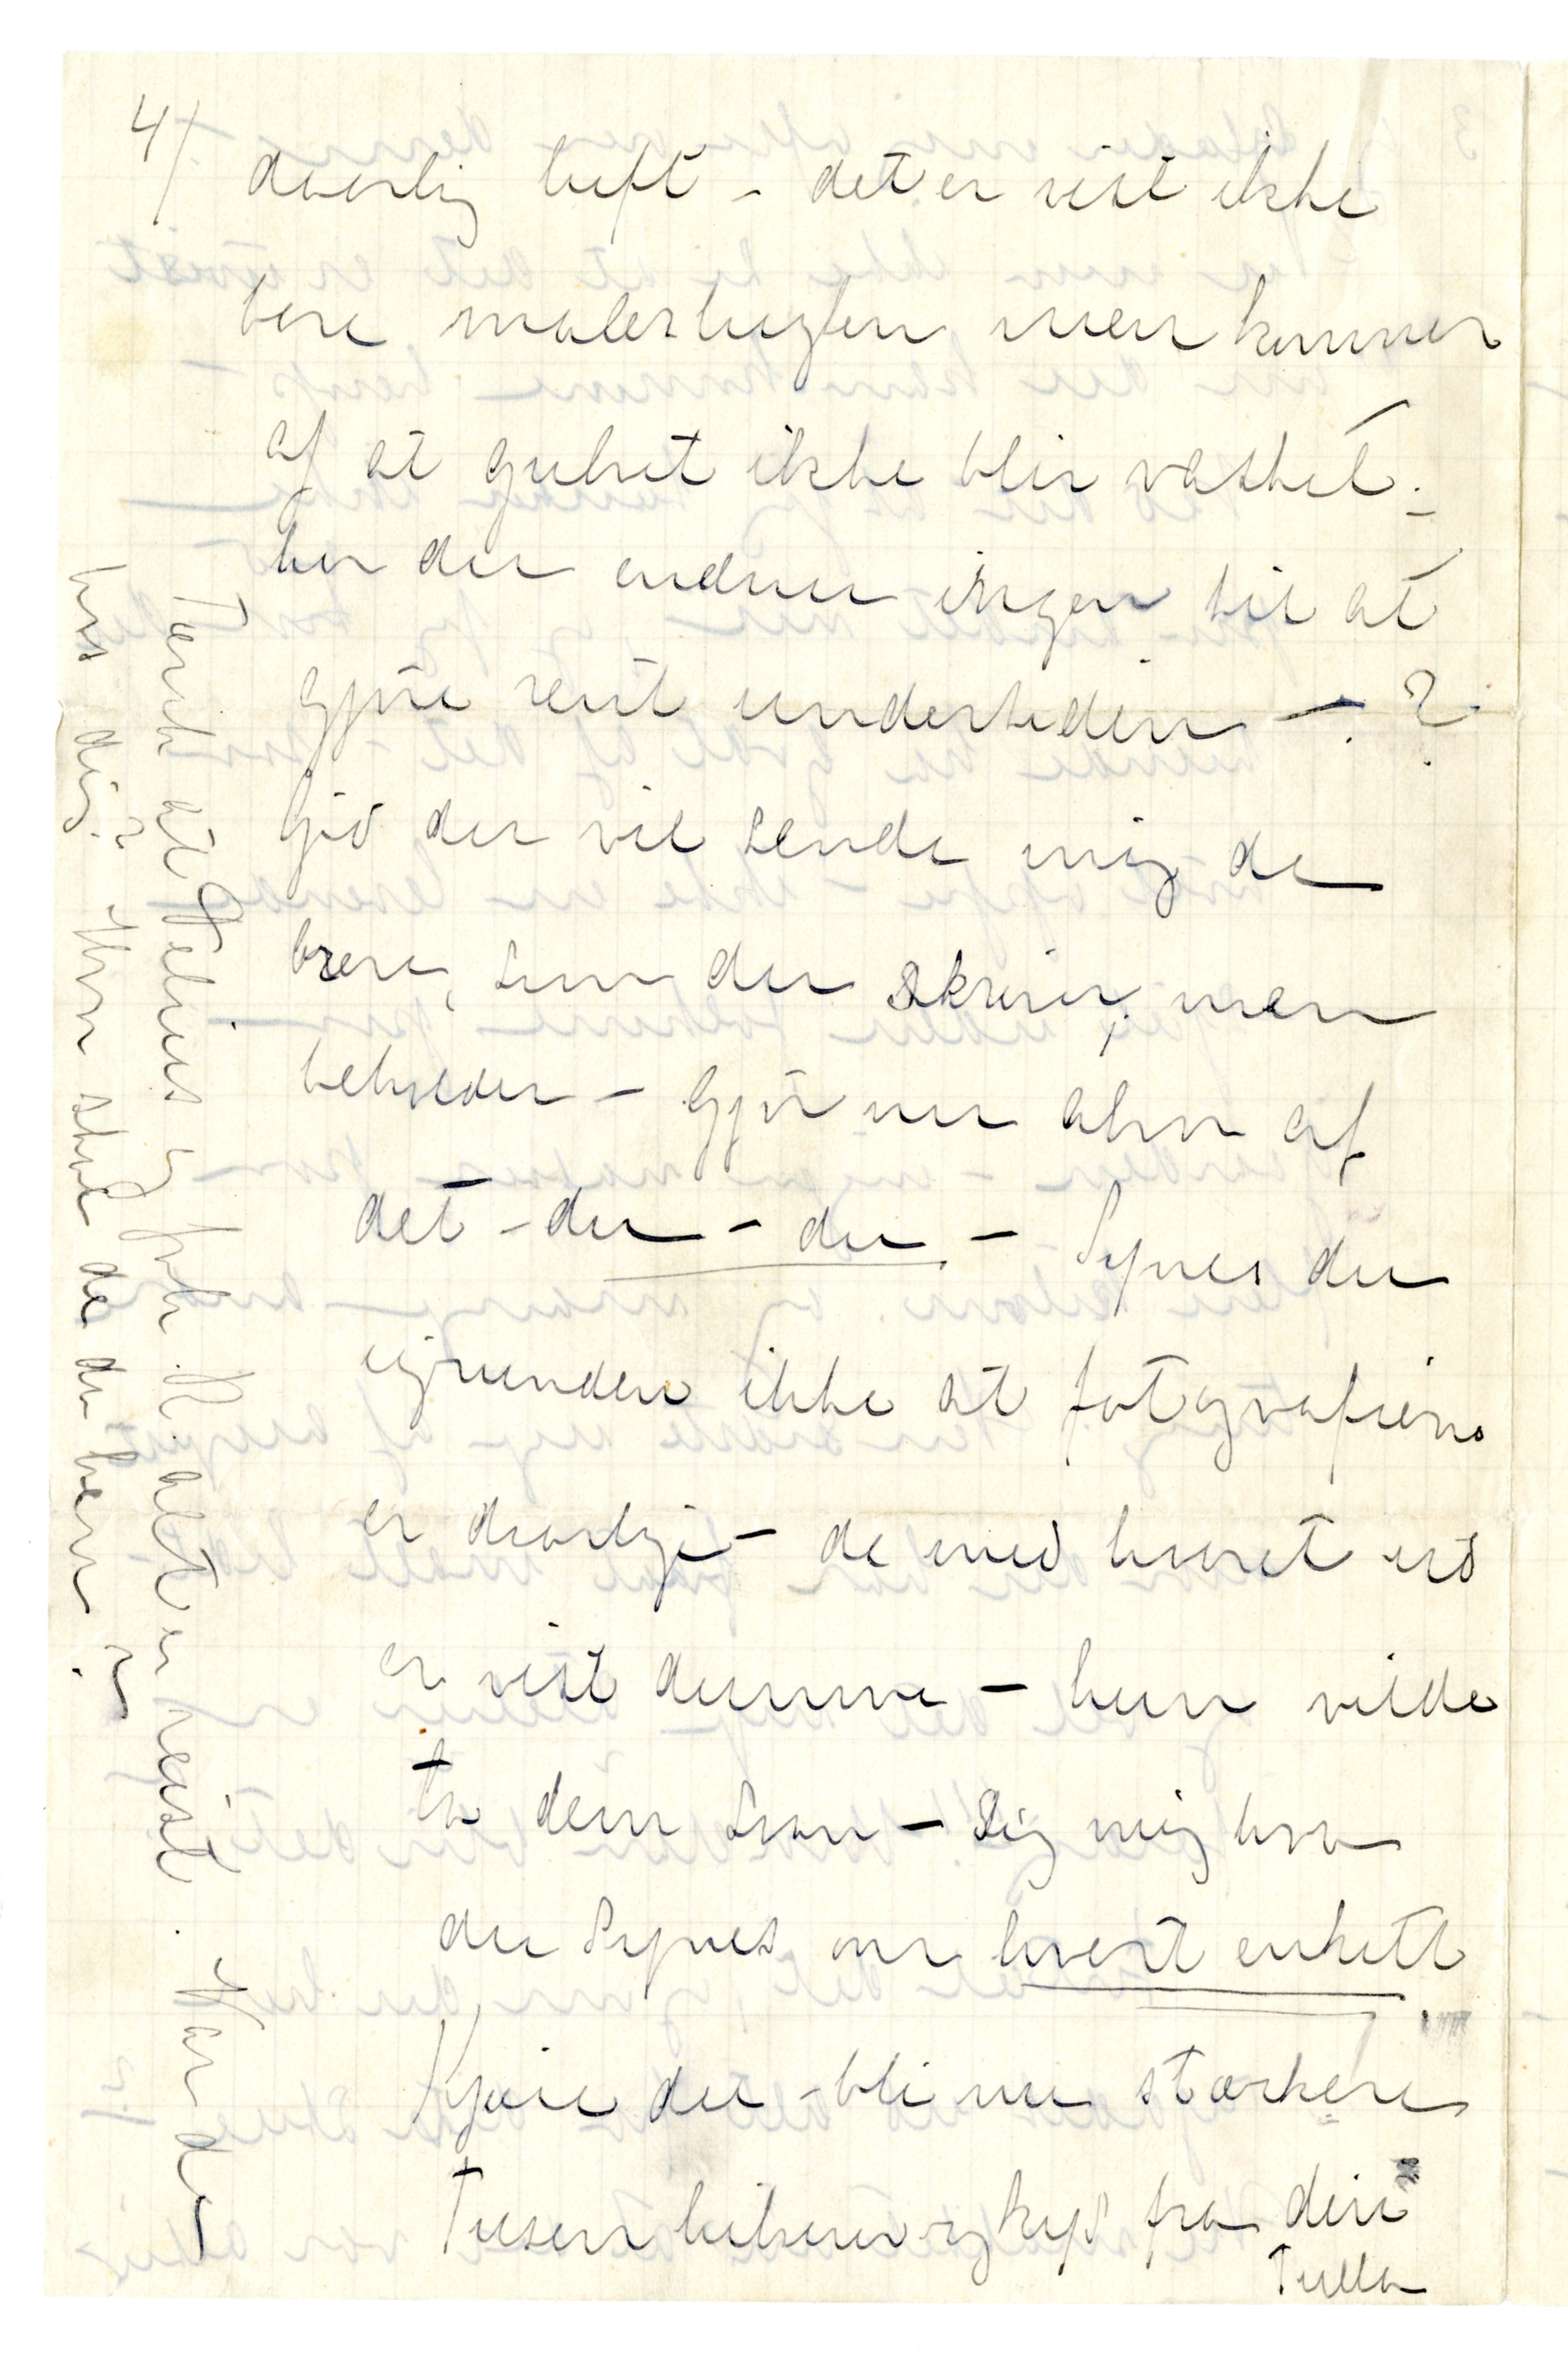 4/
daarlig luft – det er vist ikke
bare malerlugten men kommer
af at gulvet ikke blir vasket –
har du endnu ingen til at
gjøre rent undertiden – ?
gid du vil sende mig de
breve, som du skriver, men
beholder – Gjør nu alvor af
det – du – du – Synes du
igrunden ikke at fotografierne
er daarlige – de med haaret ud
er vist dumme – hun vilde
ta dem saan – Sig mig hva
du synes om hvert enkelt
Kjære du – bli nu stærkere
Tusen hilsener og kys fra din
Tulla
Tænk at Delius og frk. R. alt er reist. Har du
hos dig? Hvor skal de du hen?